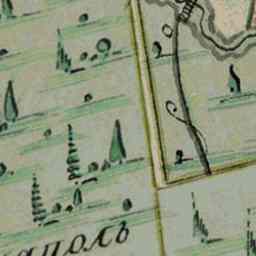 аполь